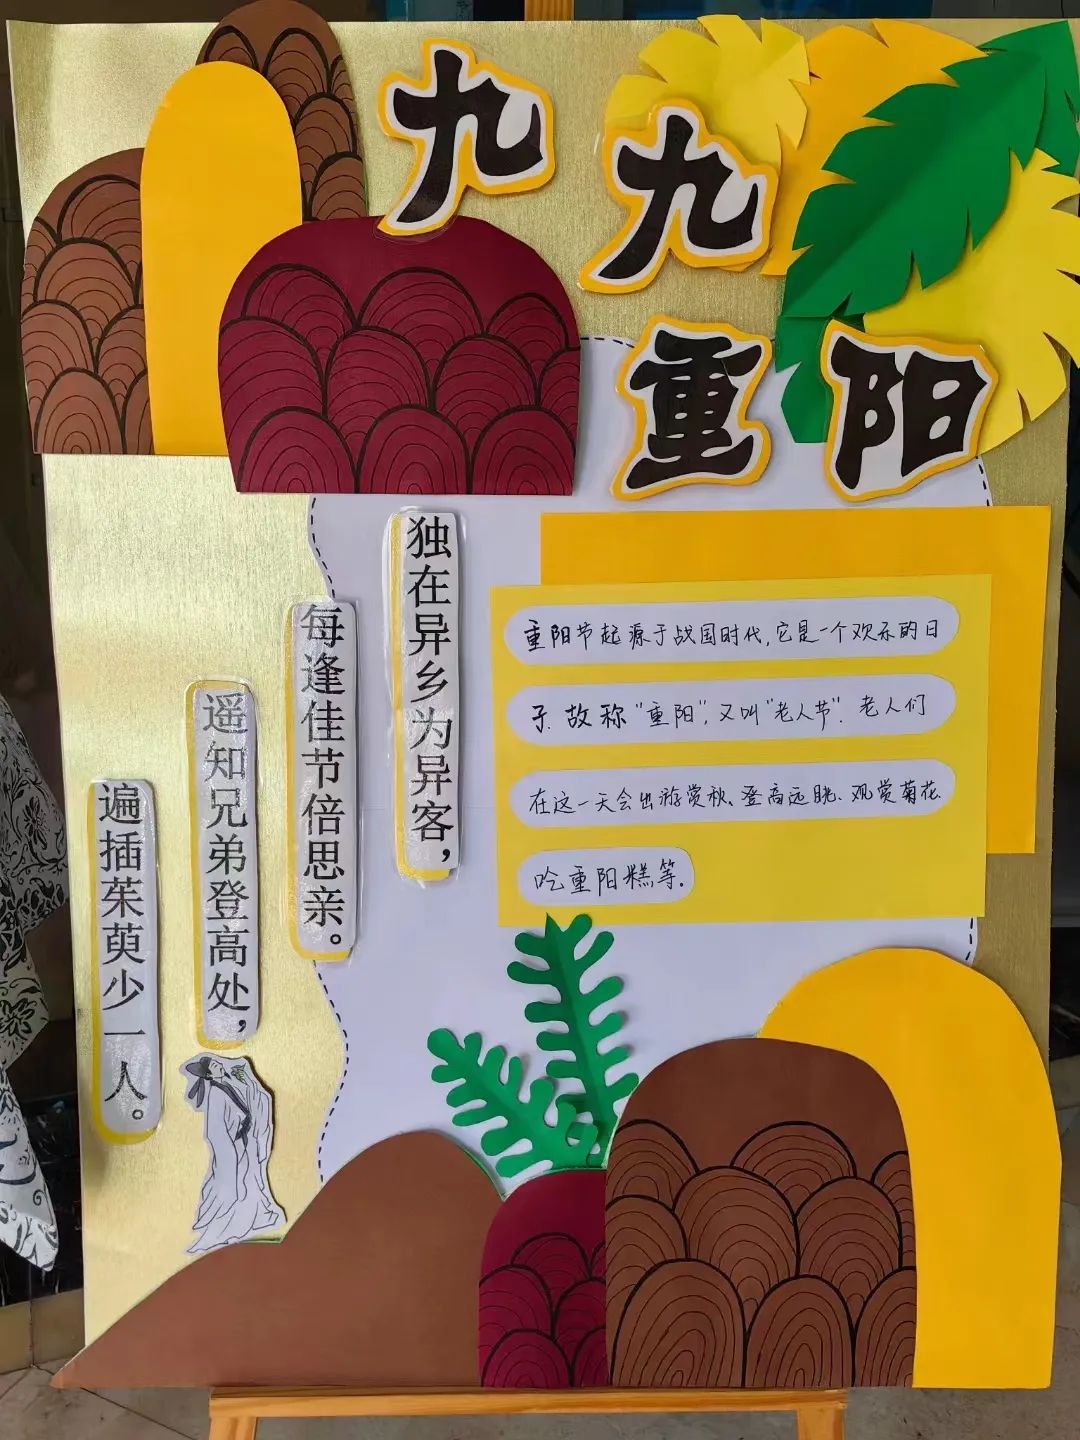 九九
重阳
独在异乡为异客，
每逢佳节倍思亲。
遥知兄弟登高处，
遍插茱萸少一人。
重阳节起源于战国时代,它是一个欢乐的日
子.故称"重阳",又叫"老人节".老人们
在这一天会出游赏秋、登高远眺、观赏菊花、
吃重阳糕等.